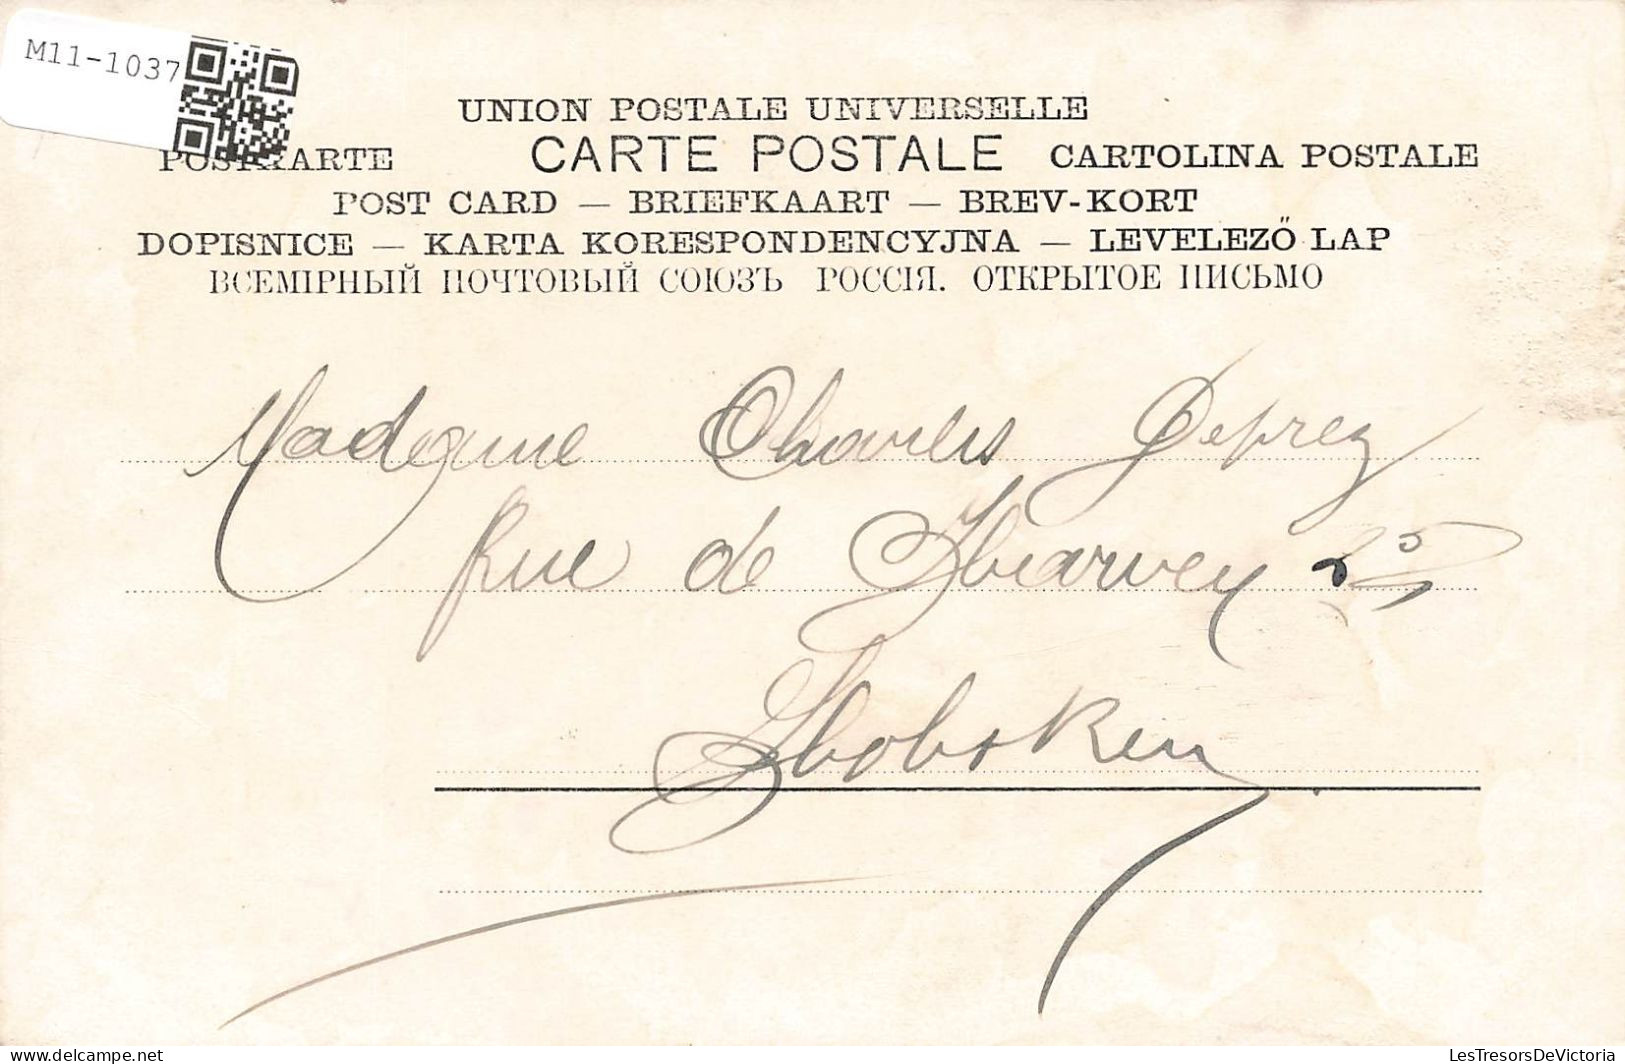 M11-1037
UNION POSTALE UNIVERSELLE
POSTKARTE CARTE POSTALE CARTOLINA POSTALE
POST CARD — BRIEFKAART — BREV-KORT
DOPISNICE — KARTA KORESPONDENCYJNA — LEVELEZŐ LAP
ВСЕМІРНЫЙ ПОЧТОВЫЙ СОЮЗЪ РОССІЯ. ОТКРЫТОЕ ПИСЬМО
Madame Charles Deprez
Rue de
Hoboken
delcampe.net
LesTresorsDeVictoria